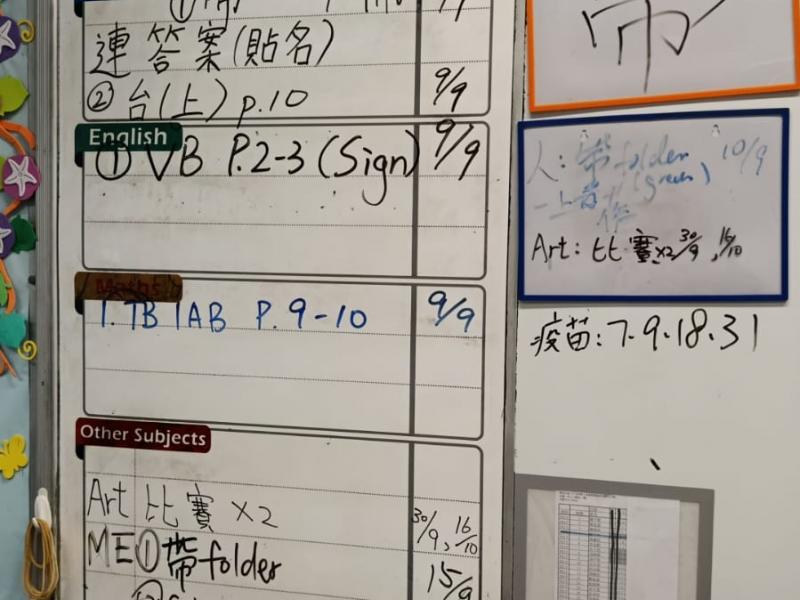 連答案(貼名)
② 台(上) p.10 9/9
English
① VB P.2-3 (Sign) 9/9
Maths
1. TB 1AB P. 9-10 9/9
Other Subjects
Art 比賽 x2 30/9, 16/10
ME ① 帶folder 15/9
人: 帶folder 10/9
(green)
Art: 比賽x2 30/9, 16/10
疫苗: 7.9.18.31